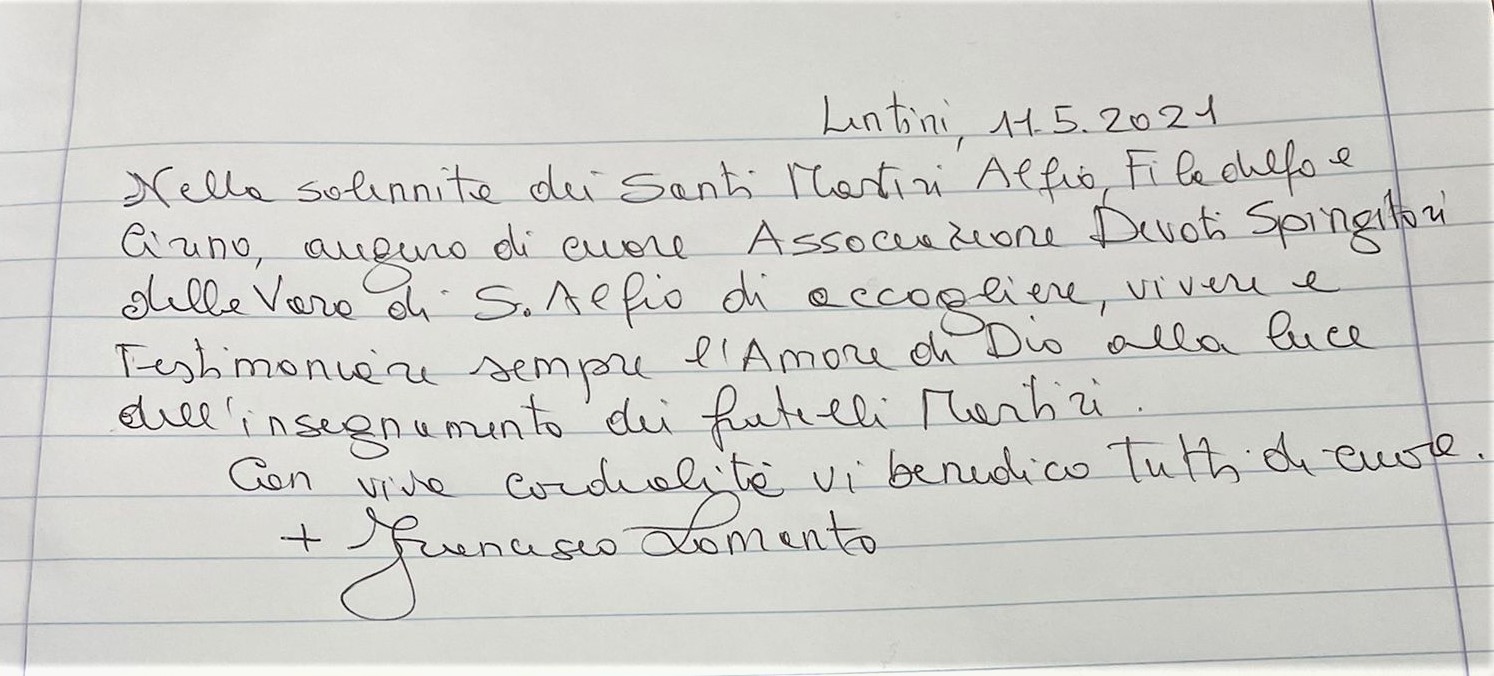 Lentini, 11.5.2021
Nella solennità dei Santi Martiri Alfio, Filadelfo e
Cirino, auguro di cuore Associazione Devoti Spingitori
della Vara di S. Alfio di accogliere, vivere e
Testimoniare sempre l'Amore di Dio alla luce
dell'insegnamento dei fratelli Martiri.
Con viva cordialità vi benedico tutti di cuore.
+ Francesco Lomanto